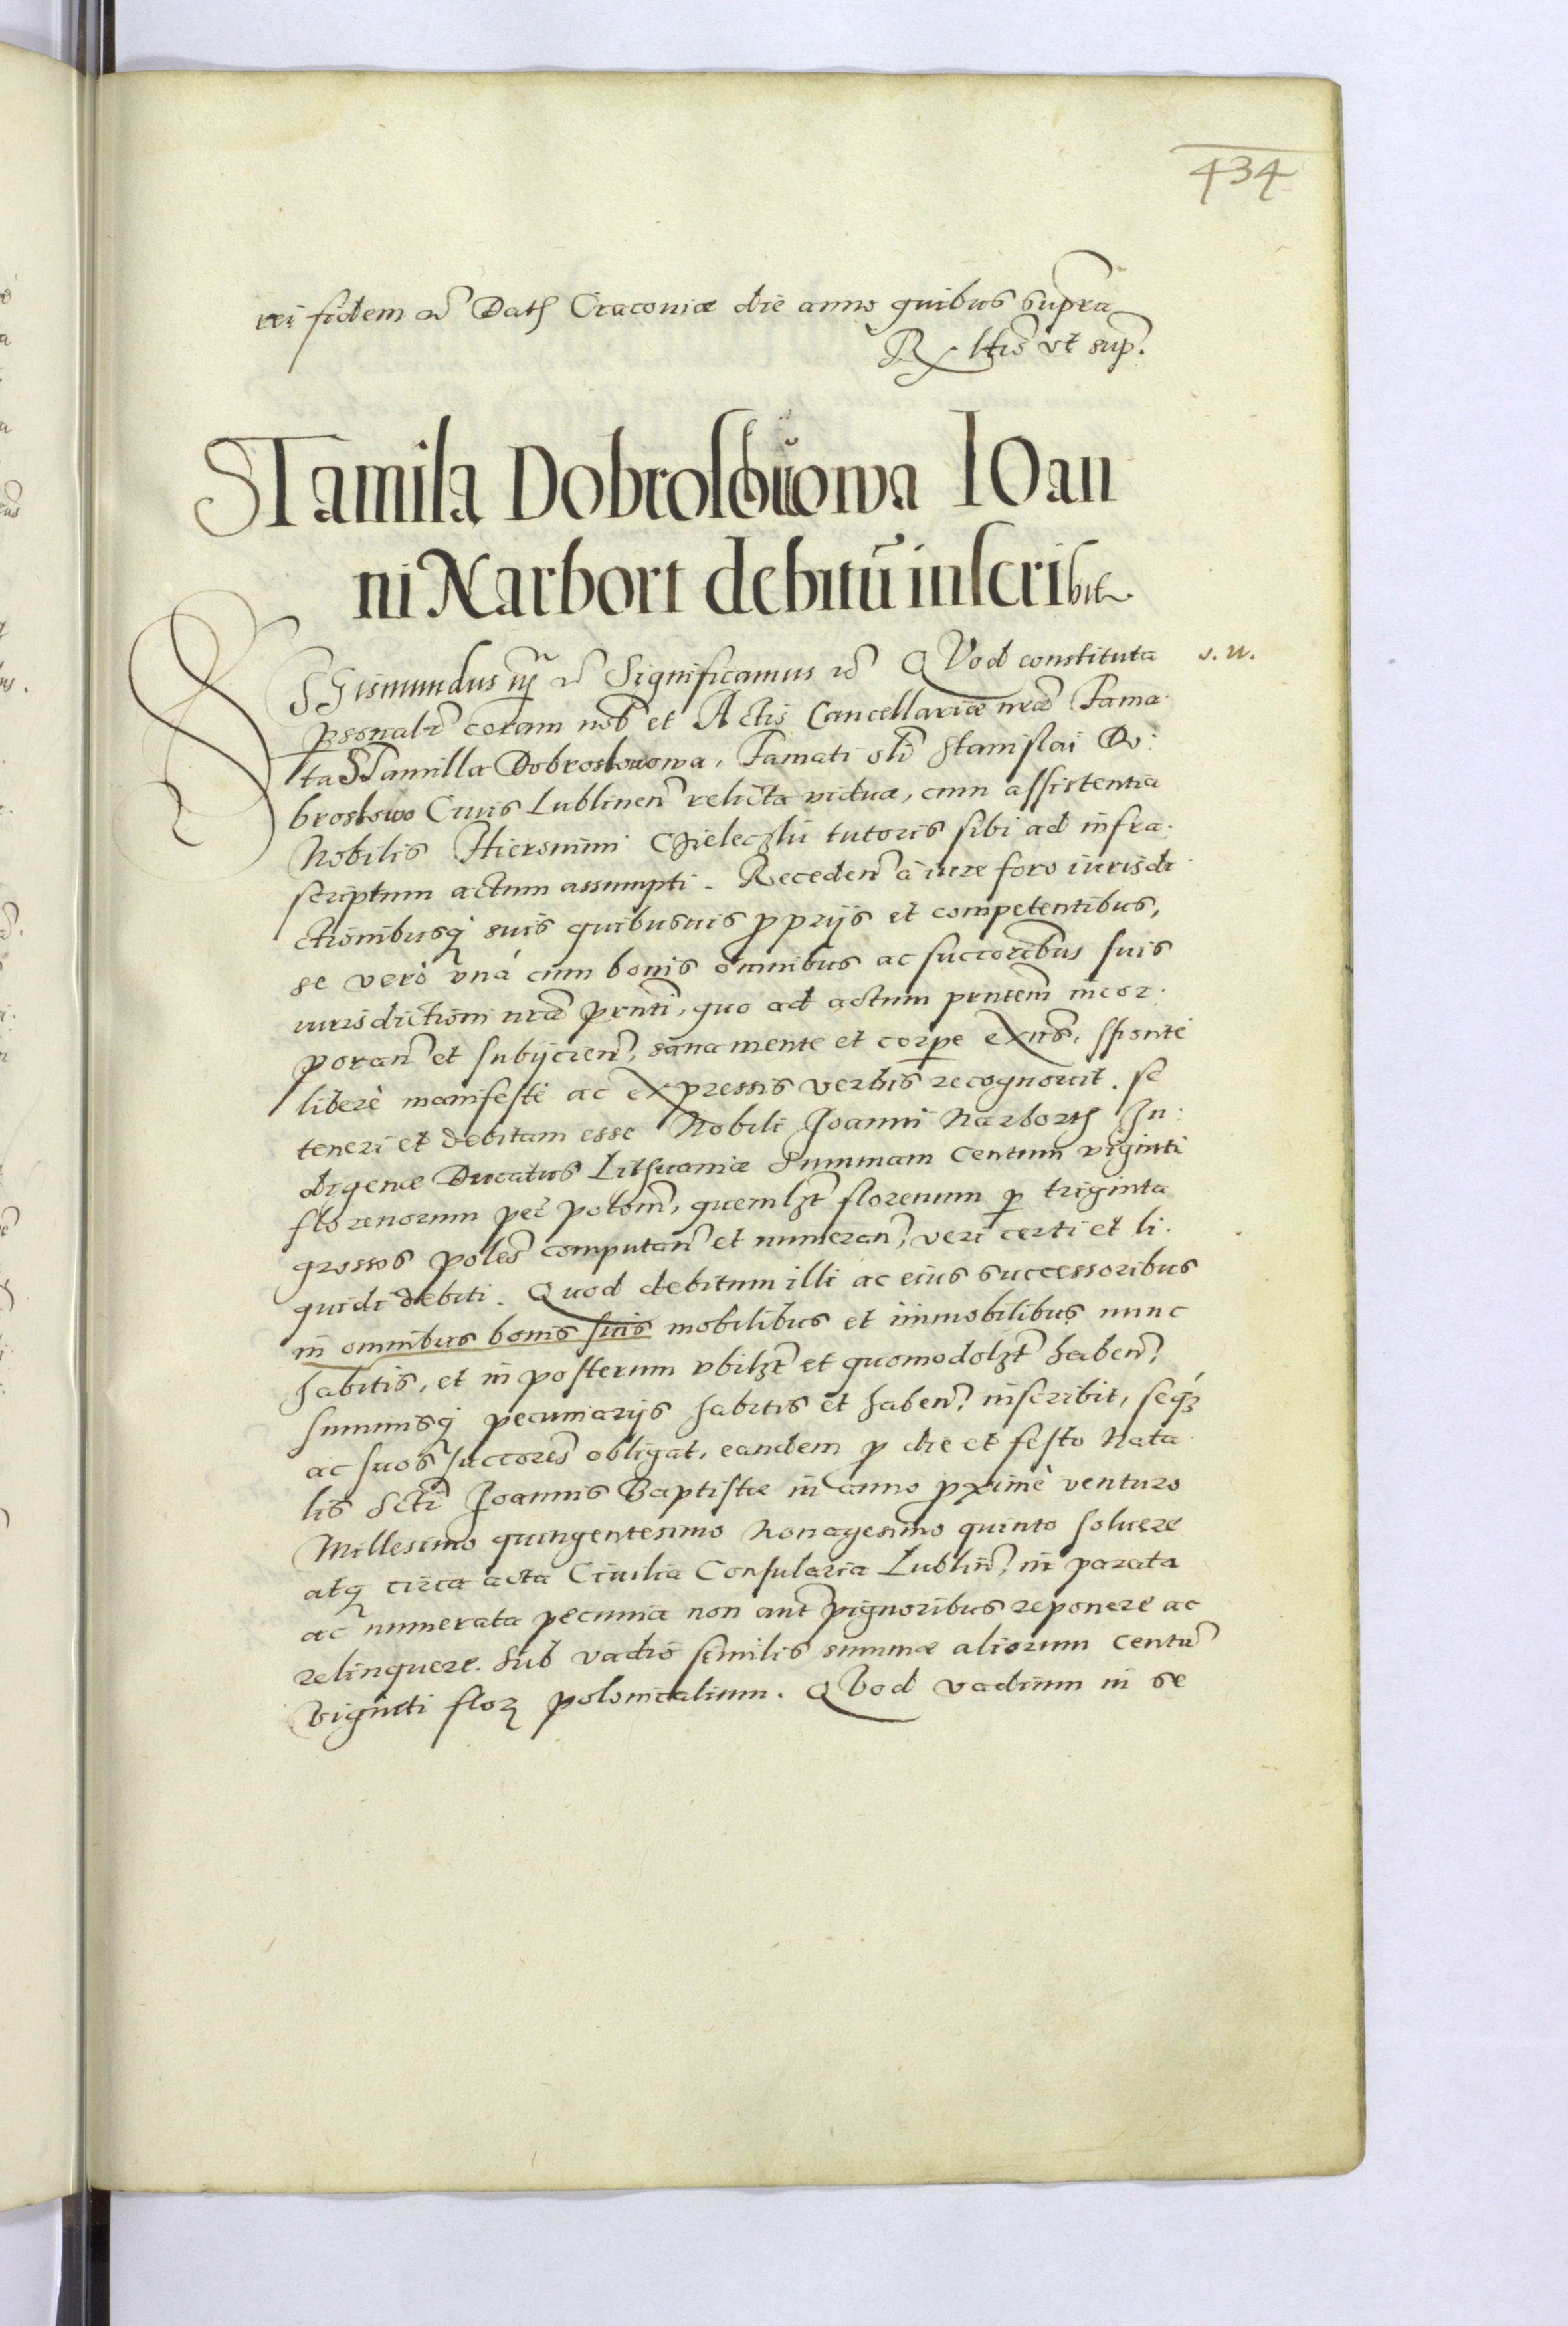 434
rei fidem etc Dath Cracoviæ die anno quibus supra
Rltis vt sup.
STamila Dobroschowa IOan
ni Narbort debitū inscribit.
SIGismundus iij etc Significamus etc QVod constituta s. n.
psonalr coram nob et Actis Cancellariæ nræ Fama
ta STamilla Dobroslowowa, Famati oli Stanislai Do:
broslowo Ciuis Lublinen relicta vidua, cum assistentia
Nobilis Hieronimi tutoris sibi ad infra
scriptum actum assumpti. Receden à iure foro iurisdi
ctionibusq suis quibusuis pprijs et competentibus,
se verò vnà cum bonis omnibus ac succoribus suis
iurisdictioni nræ prnti, quo ad actum prntem incor
poran et subijcien, sana mente et corpe exns, sponte
liberè manifestè ac expressis verbis recognouit. se
teneri et debitam esse Nobili Joanni Narborth In:
digenæ Ducatus Lithuaniæ Summam Centum viginti
florenorum pec polom, quemlzt florenum p triginta
grossos poles computan et numeran, veri certi et li
quidi debiti. Quod debitum illi ac eius successoribus
in omnibus bonis suis mobilibus et immobilibus nunc
habitis, et in posterum vbilzt et quomodolzt haben,
summisq pecuniarijs habitis et haben, inscribit, seqz
ac suos succores obligat, eandem p die et festo Nata
lis Scti Joannis Baptistæ in anno pximè venturo
Millesimo quingentesimo Nonagesimo quinto soluere
atq circa acta Ciuilia Consularia Lublin, in parata
ac numerata pecunia non aut pignoribus reponere ac
relinquere. Sub vadio similis summæ aliorum Centū
Viginti flor polonicalium. QVod vadium in se